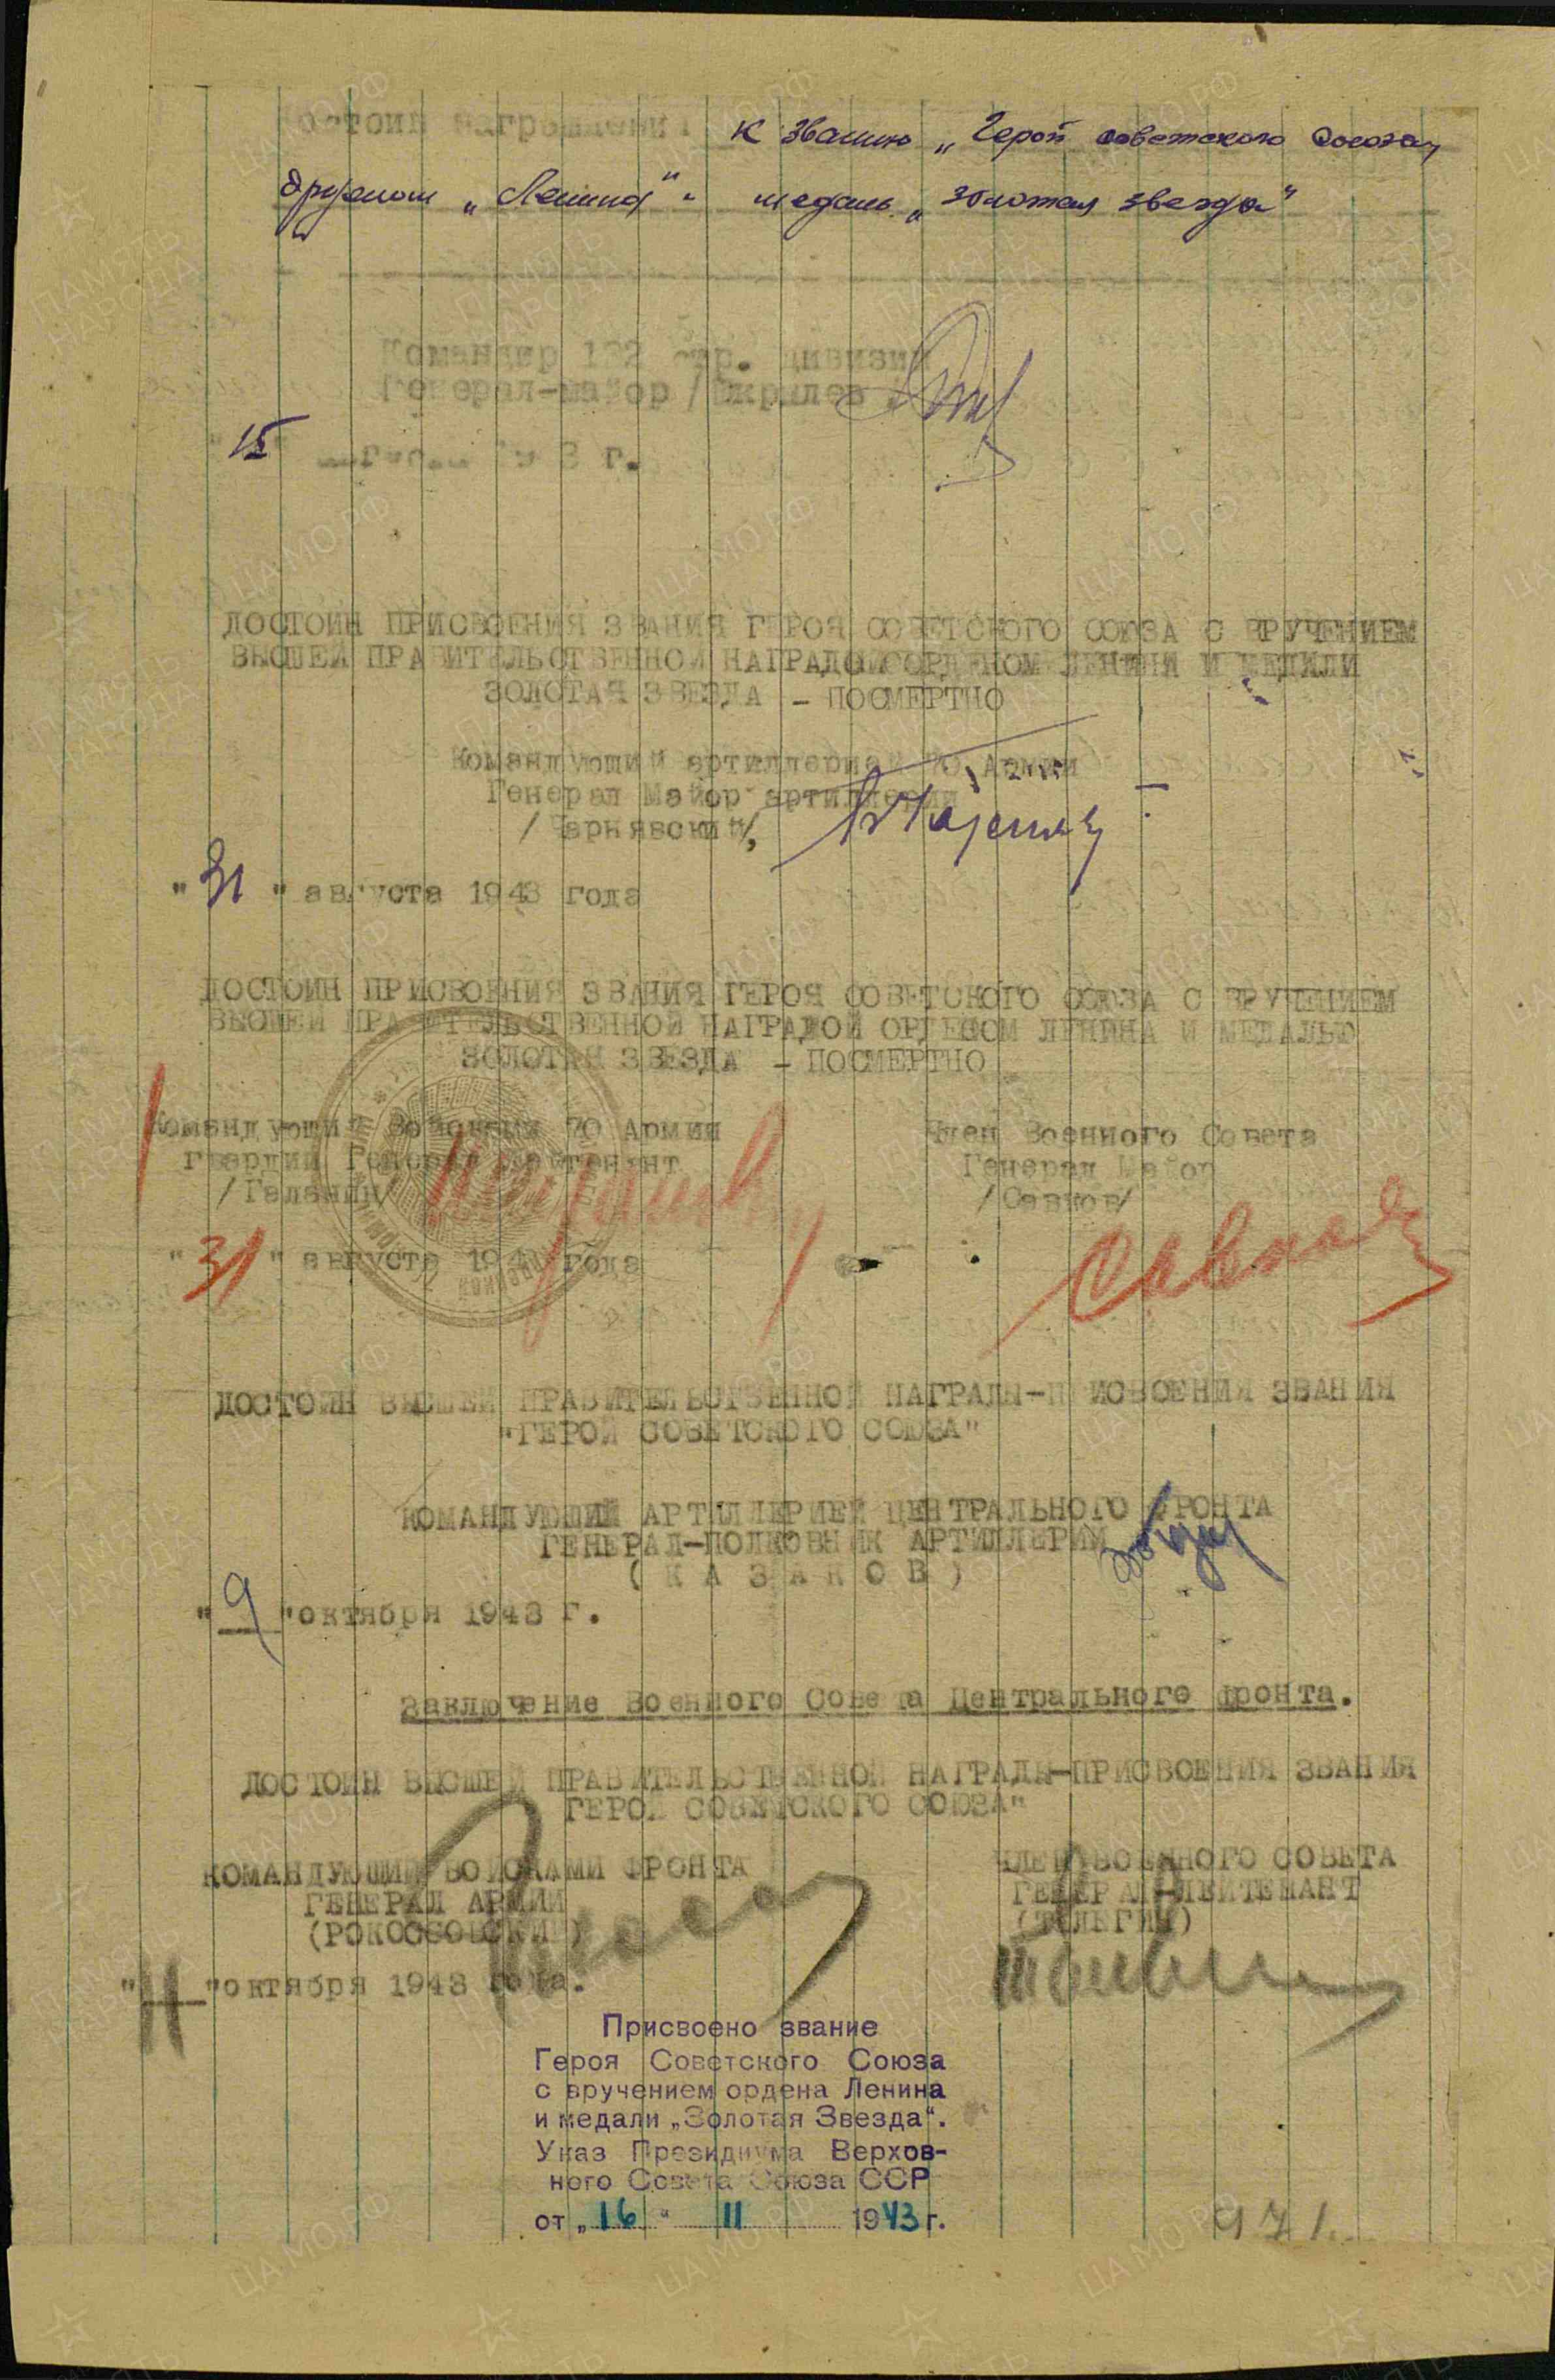 Достоин награждения к званию „Герой советского Союза„
орденом „Ленина" и медаль „золотая звезда"
Командир 132 стр. дивизии
Генерал-майор /Шкрылев
"15" августа 1943 г.
ДОСТОИН ПРИСВОЕНИЯ ЗВАНИЯ ГЕРОЯ СОВЕТСКОГО СОЮЗА С ВРУЧЕНИЕМ
ВЫСШЕЙ ПРАВИТЕЛЬСТВЕННОЙ НАГРАДОЙ ОРДЕНОМ ЛЕНИНА И МЕДАЛИ
ЗОЛОТАЯ ЗВЕЗДА - ПОСМЕРТНО
Командующий артиллерией 70 Армии
Генерал Майор артиллерии
/Чернявский/,
"31" августа 1943 года
ДОСТОИН ПРИСВОЕНИЯ ЗВАНИЯ ГЕРОЯ СОВЕТСКОГО СОЮЗА С ВРУЧЕНИЕМ
ВЫСШЕЙ ПРАВИТЕЛЬСТВЕННОЙ НАГРАДОЙ ОРДЕНОМ ЛЕНИНА И МЕДАЛЬЮ
ЗОЛОТАЯ ЗВЕЗДА - ПОСМЕРТНО
Командующий Войсками 70 Армии Член Военного Совета
гвардии Генерал Лейтенант Генерал Майор
/Галанин/ /Савков/
Савков
"31" августа 1943 года
ДОСТОИН ВЫСШЕЙ ПРАВИТЕЛЬСТВЕННОЙ НАГРАДЫ-ПРИСВОЕНИЯ ЗВАНИЯ
"ГЕРОЙ СОВЕТСКОГО СОЮЗА"
КОМАНДУЮЩИЙ АРТИЛЛЕРИЕЙ ЦЕНТРАЛЬНОГО ФРОНТА
ГЕНЕРАЛ-ПОЛКОВНИК АРТИЛЛЕРИИ
(КАЗАКОВ)
"9" октября 1943 г.
Заключение Военного Совета Центрального фронта.
ДОСТОИН ВЫСШЕЙ ПРАВИТЕЛЬСТВЕННОЙ НАГРАДЫ-ПРИСВОЕНИЯ ЗВАНИЯ
ГЕРОЯ СОВЕТСКОГО СОЮЗА"
КОМАНДУЮЩИЙ ВОЙСКАМИ ФРОНТА ЧЛЕН ВОЕННОГО СОВЕТА
ГЕНЕРАЛ АРМИИ ГЕНЕРАЛ-ЛЕЙТЕНАНТ
(РОКОССОВСКИЙ) (ТЕЛЕГИН)
"11" октября 1943 года.
Присвоено звание
Героя Советского Союза
с вручением ордена Ленина
и медали „Золотая Звезда".
Указ Президиума Верхов-
ного Совета Союза ССР
от „16" 11 1943 г.
971